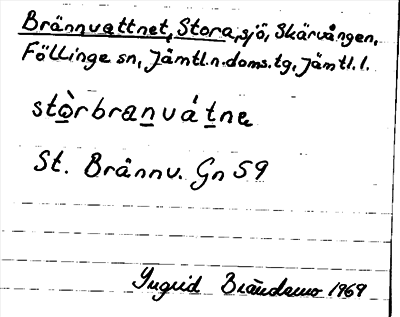 Brännvattnet, Stora, sjö, Skärvången,
Föllinge sn, Jämtl.n.doms.tg, Jämtl.l.
stòrbranvátnɐ
St. Brännv. Gn 59
Yngvid Brändemo 1969